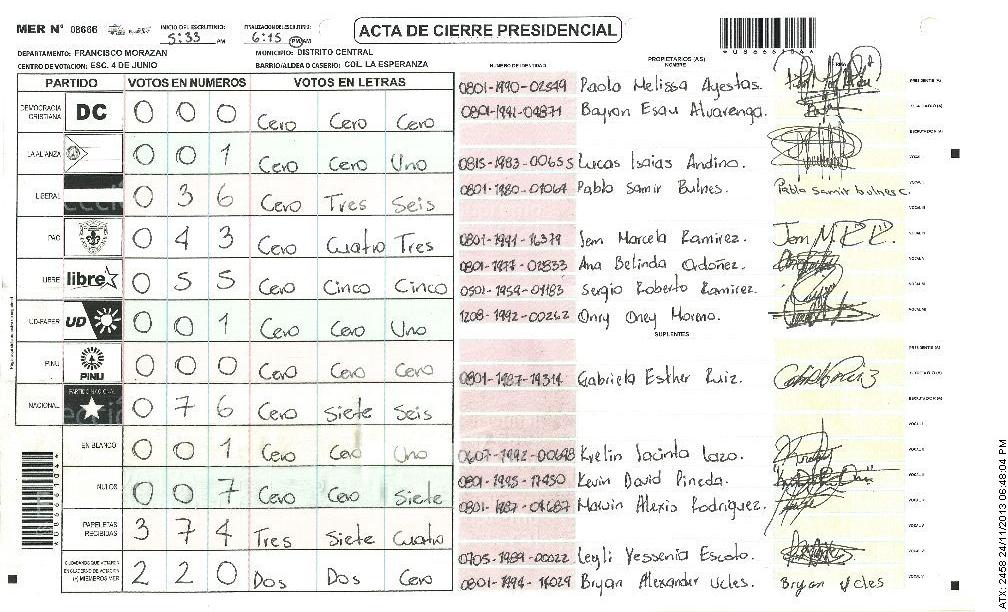 MER N° 08666 INICIO DEL ESCRUTINIO: 5:33 PM FINALIZACION DEL ESCRUTINIO: 6:15 PM/AM
ACTA DE CIERRE PRESIDENCIAL
DEPARTAMENTO: FRANCISCO MORAZAN MUNICIPIO: DISTRITO CENTRAL
CENTRO DE VOTACION: ESC. 4 DE JUNIO BARRIO/ALDEA O CASERIO: COL. LA ESPERANZA
PARTIDO VOTOS EN NUMEROS VOTOS EN LETRAS
DEMOCRACIA CRISTIANA DC 0 0 0 Cero Cero Cero
LA ALIANZA 0 0 1 Cero Cero Uno
LIBERAL 0 3 6 Cero Tres Seis
PAC 0 4 3 Cero Cuatro Tres
LIBRE libre 0 5 5 Cero Cinco Cinco
UD-FAPER UD 0 0 1 Cero Cero Uno
PINU PINU 0 0 0 Cero Cero Cero
NACIONAL PARTIDO NACIONAL 0 7 6 Cero Siete Seis
EN BLANCO 0 0 1 Cero Cero Uno
NULOS 0 0 7 Cero Cero Siete
PAPELETAS RECIBIDAS 3 7 4 Tres Siete Cuatro
CIUDADANOS QUE VOTARON EN CUADERNO DE VOTACION (+) MIEMBROS MER 2 2 0 Dos Dos Cero
NUMERO DE IDENTIDAD PROPIETARIOS (AS) NOMBRE
0801-1990-02549 Paola Melissa Ayestas.
0801-1991-04871 Bayron Esau Alvarenga.
0815-1983-00655 Lucas Isaias Andino.
0801-1980-07064 Pablo Samir Bulnes. Pablo Samir bulnes C.
0801-1991-16379 Jem Marcela Ramirez. Jem M. R R.
0801-1977-02833 Ana Belinda Ordoñez.
0501-1959-01183 Sergio Roberto Ramirez.
1208-1992-00262 Onry Oney Moreno.
SUPLENTES
0801-1987-19314 Gabriela Esther Ruiz.
0607-1992-00698 Kvelin Jacinta Lazo.
0801-1995-17450 Kevin David Pineda.
0801-1987-07687 Marvin Alexis Rodriguez.
0705-1989-00022 Leyli Yessenia Escoto.
0801-1994-14029 Bryan Alexander Ucles. Bryan Ucles
ATX: 2458 24/11/2013 06:48:04 PM